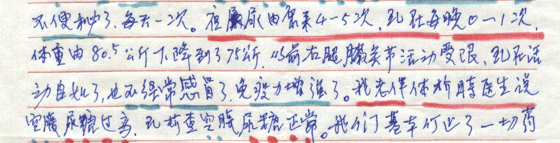 不便秘了,每天一次。夜晨尿由原来4-5次,现在每晚0-1次,
体重由80.5公斤下降到了75公斤,以前右腿膝关节活动受限,现在活
动自如了,也不经常感冒了免疫力增强了。我老伴体检时医生说
空腹尿糖过高,现检查空腹尿糖正常。我们基本停止了一切药